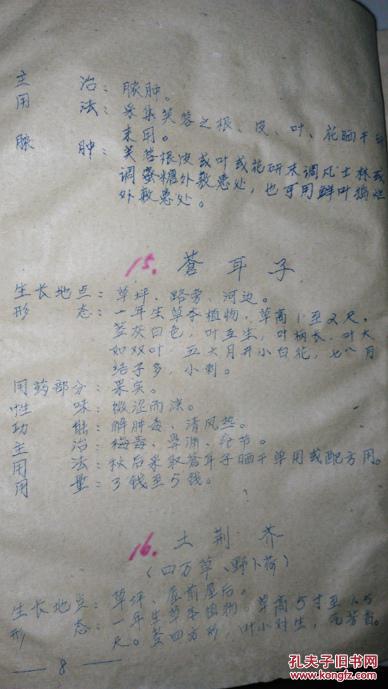 主 治：脓肿。
用 法：采集芙蓉之根、皮、叶、花晒干
来用。
脓 肿：芙蓉根皮或叶或花研末调凡士林或
调蜜糖外敷患处，也可用鲜叶捣烂
外敷患处。
15. 苍耳子
生长地点：草坪、路旁、河边。
形 态：一年生草本植物，草高1至2尺，
茎灰白色，叶互生，叶柄长，叶大
如双叶，五六月开小白花，七八月
结子多，小刺。
用药部分：果实。
性 味：微涩而凉。
功 能：解肿毒、清风热。
主 治：梅毒、鼻渊、
用 法：秋后采取苍耳子晒干单用或配方用。
用 量：3钱至5钱。
16. 土荆芥
（四方草、野卜荷）
生长地点：草坪，屋前屋后。
形 态：一年生草本植物，草高5寸至1.5
尺。茎四方形，叶小对生，有芳香。
— 8 —
孔夫子旧书网
www.kongfz.com